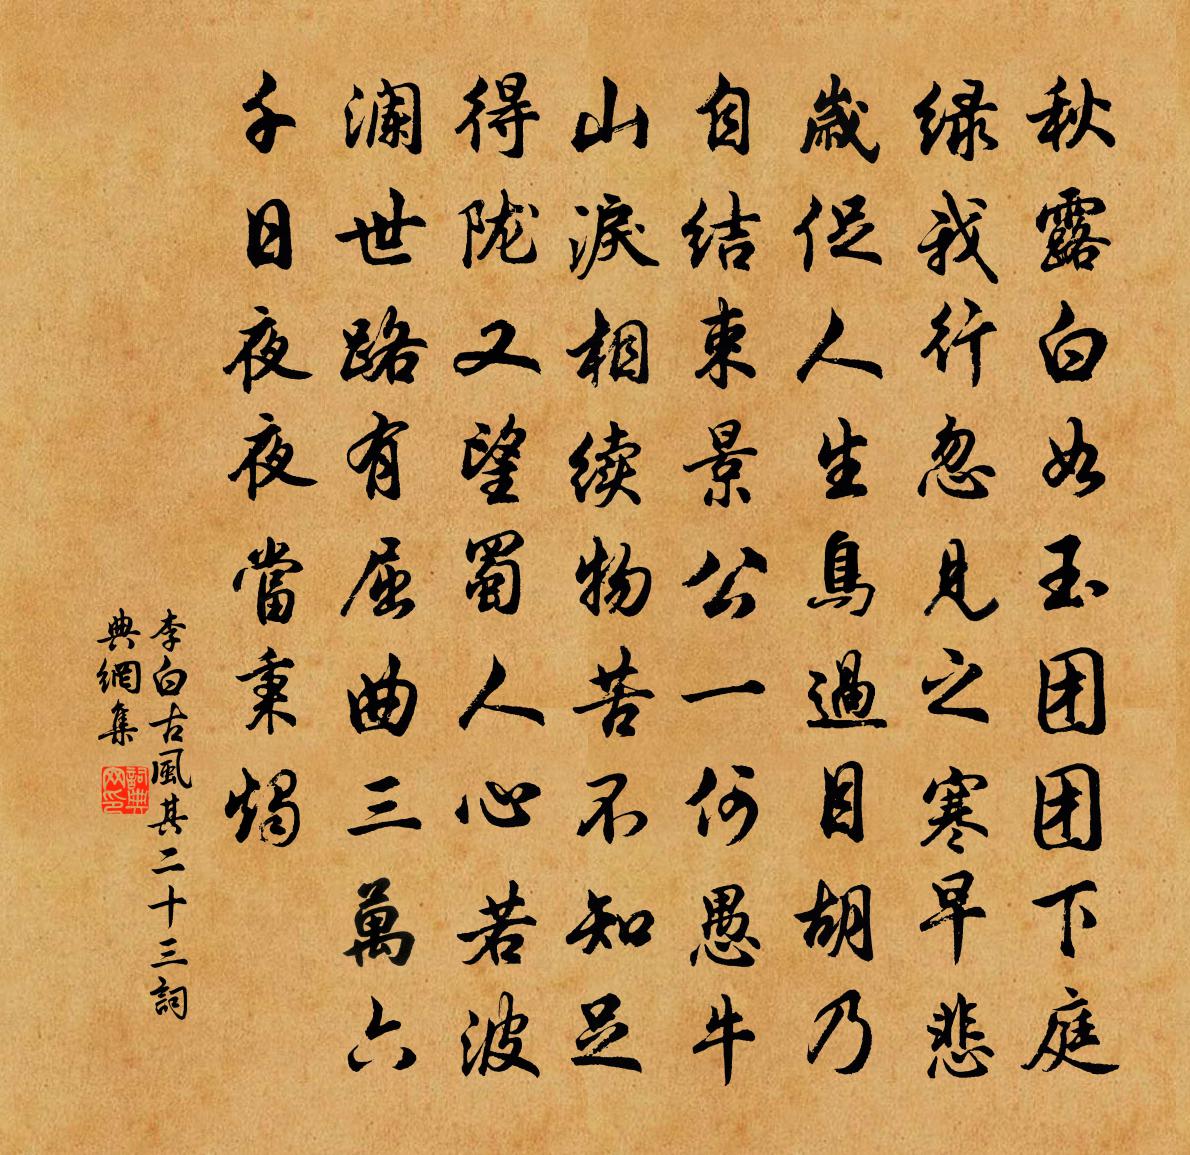 秋露白如玉团团下庭
绿我行忽见之寒早悲
岁促人生鳥過目胡乃
自结束景公一何愚牛
山淚相续物苦不知足
得陇又望蜀人心若波
澜世路有屈曲三萬六
千日夜夜當秉燭
李白古風其二十三詞
典網集
詞典网印